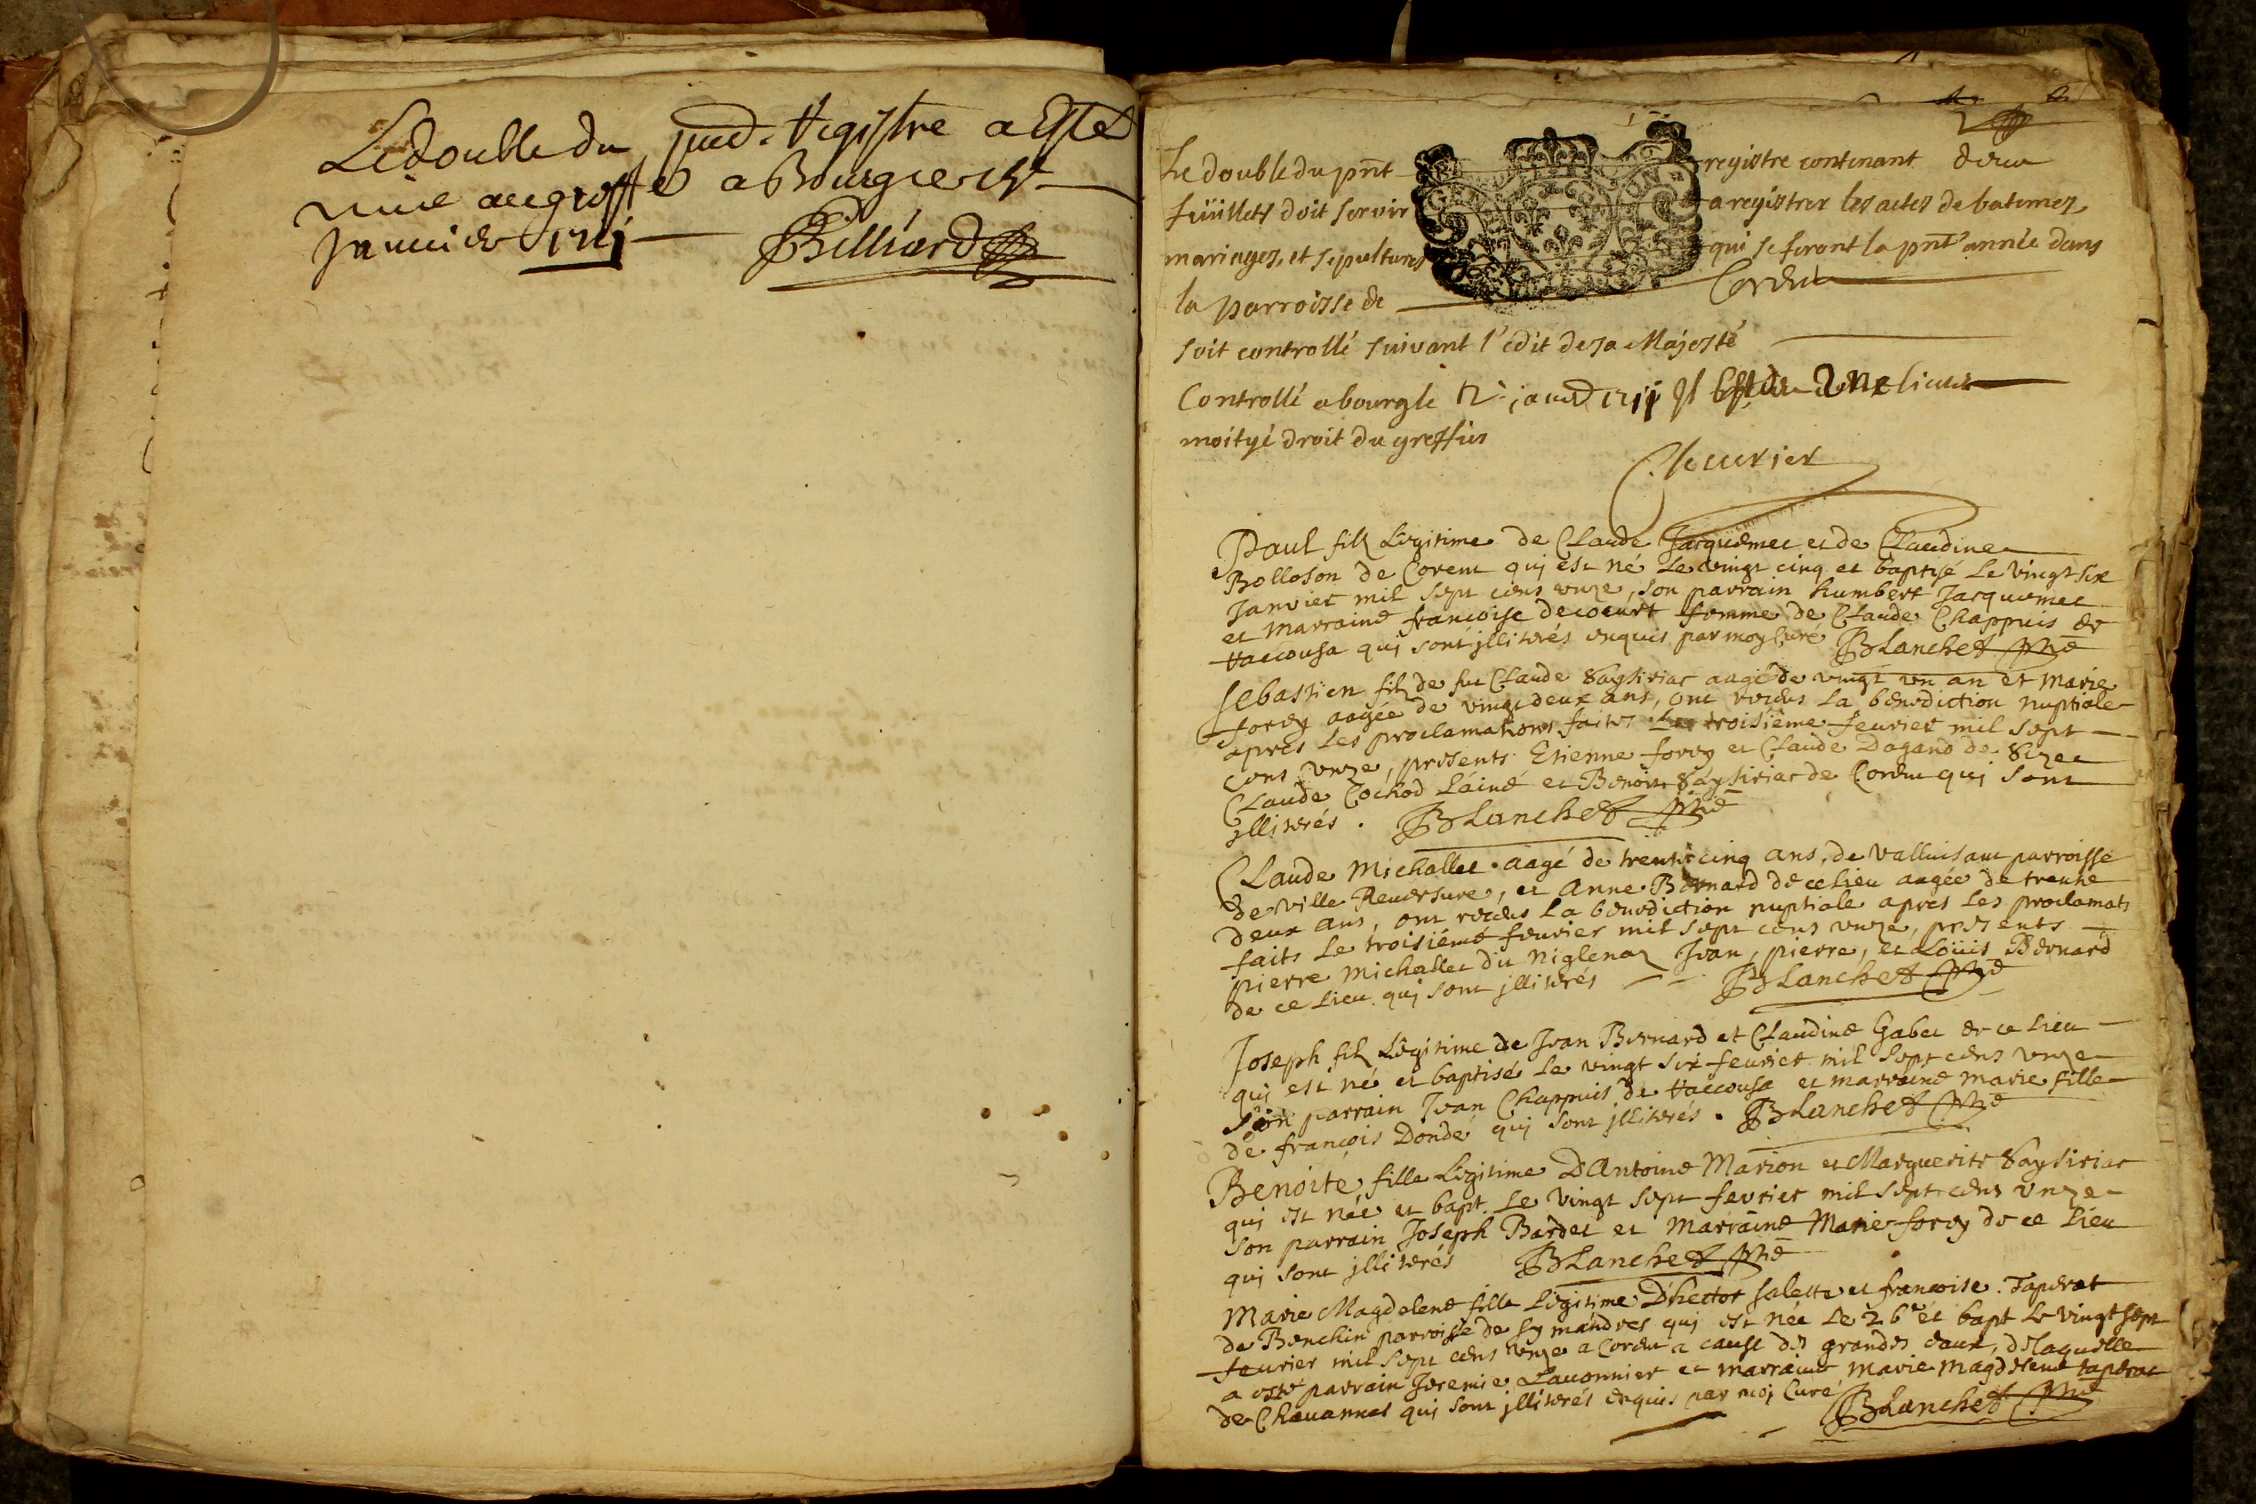 Le double du pnt. Registre a esté
mis au greffe a Bourg ce 15e
Janvier 1711 Billiard
Le double du pnt registre contenant deux
feüillets doit servir a registrer les actes de batemes,
mariages, et sepultures qui se feront la pnt' année dans
la parroisse de Corent
soit controllé suivant l'edit de sa Majesté
Controllé a bourg le janv 1711 livre
moityé droit du greffier
Cheurier
Paul filz Légitime de Claude Jacquemet et de Claudine
Bolloson de Corent qui est né Le vingt cinq et baptisé Le vingt six
Janvier mil sept cens unze, son parrain humbert Jacquemet
et marraine francoise decoeurt femme de Claude Chappuis de
Vaccousa qui sont jlliterés enquis par moy Curé BLanchet
Sebastien filz de feu Claude aagé de vingt un an et Marie
forey aagée de vingt deux ans, ont receus La benediction nuptiale
apres Les proclamations faites Le troisième feurier mil sept
cens unze, presents Etienne forey et Claude Dagand de
Claude Cochod L'ainé et Benoit de Corent qui sont
jlliterés . BLanchet
Claude Michallet aagé de trente cinq ans, de valluisant parroisse
de ville Reuersure, et Anne Bernard de ce Lieu aagée de trente
deux ans, ont receus La benediction nuptiale apres Les proclamats
faits Le troisiéme feurier mil sept cens unze, presents
pierre michallet du Jean, pierre, et Loüis Bernard
de ce Lieu qui sont jlliterés BLanchet
Joseph filz Légitime de Jean Bernard et Claudine Gabet de ce Lieu
qui est né et baptisé Le vingt six feurier mil sept cens unze
son parrain Jean Chappuis de Vaccousa et marraine marie fille
de françois Donde qui sont jlliterés . BLanchet
Benoite fille Légitime D'Antoine Marion et Marguerite
qui est née et bapt. Le vingt sept fevrier mil sept cens unze
son parrain Joseph Bardet et marraine Marie forey de ce Lieu
qui sont jlliterés BLanchet
Marie Magdelene fille Légitime D'hector salette et francoise Taperat
de parroisse de symandres qui est née Le 26e et bapt Le vingt sept
feurier mil sept cens unze a Corent a cause des grandes eaux, de Laquelle
a esté parrain Jeremie Lauonnier et marraine marie magdelene taperat
de Chauannes qui sont jlliterés enquis par moi Curé BLanchet